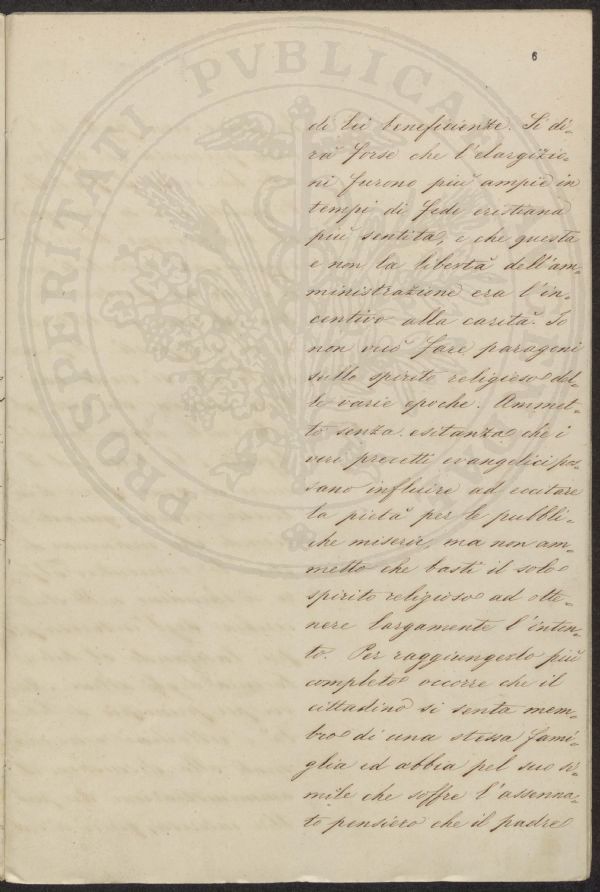 6
PROSPERITATI PVBLICA
di lui beneficienze. Si di-
rà forse che l'elargizio-
ni furono più ampie in
tempi di fede cristiana
più sentita, e che questa
e non la libertà dell'am-
ministrazione era l'in-
centivo alla carità. Io
non vuò fare paragoni
sullo spirito religioso del-
le varie epoche. Ammet-
to senza esitanza che i
veri precetti evangelici pos-
sano influire ad eccitare
la pietà per le pubbli-
che miserie, ma non am-
metto che basti il solo
spirito religioso ad otte-
nere largamente l'inten-
to. Per raggiungerlo più
completo occorre che il
cittadino si senta mem-
bro di una stessa fami-
glia ed abbia pel suo si-
mile che soffre l'assenna-
to pensiero che il padre